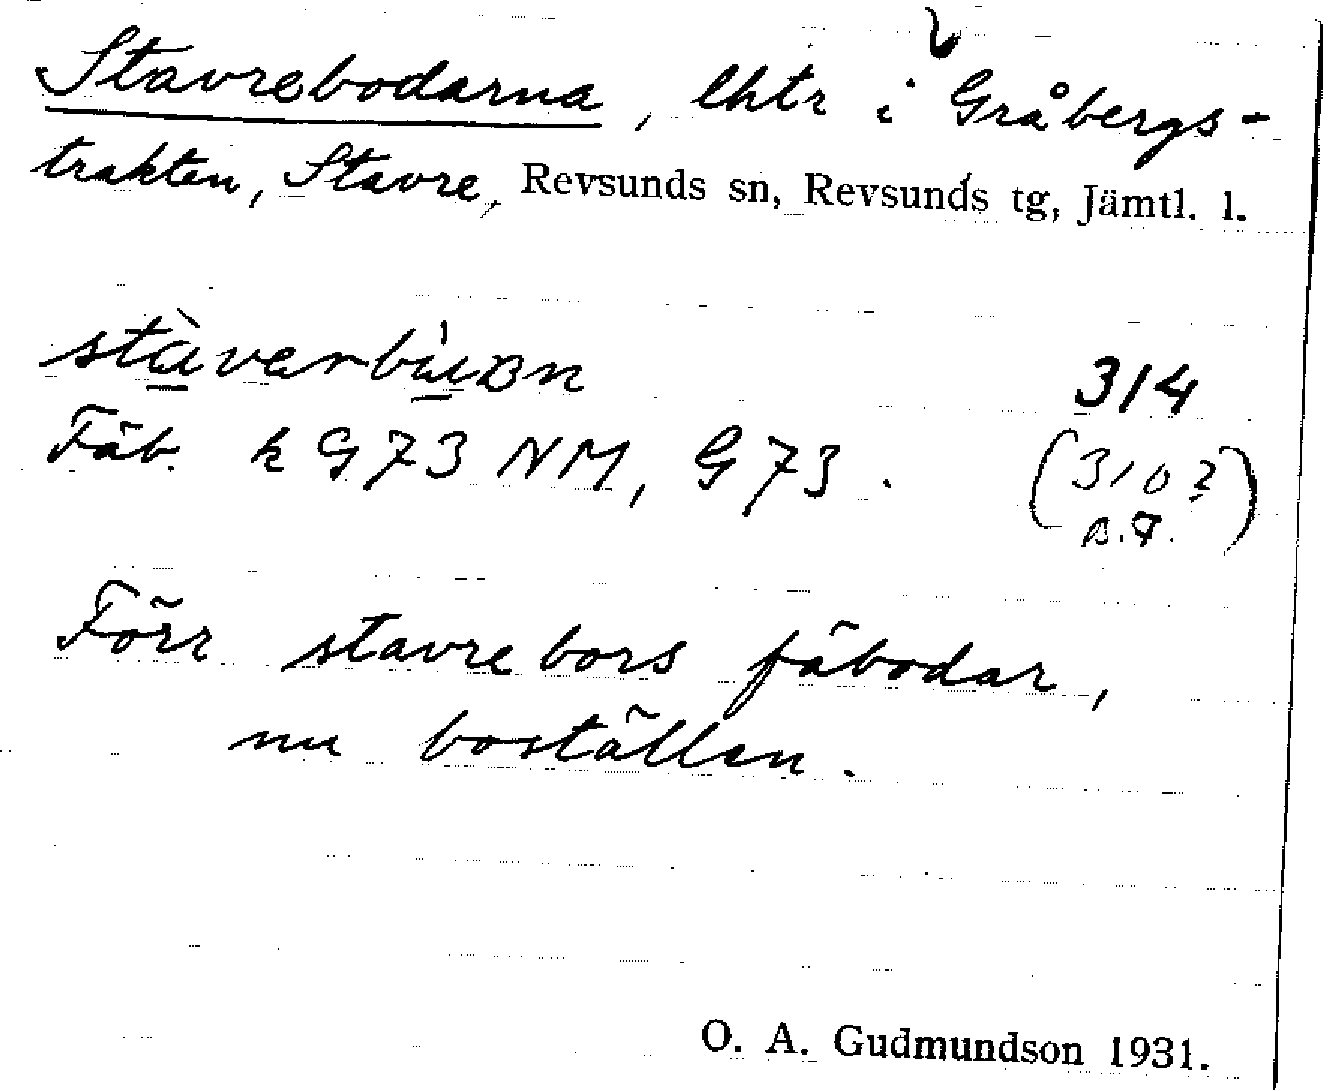 Stavrebodarna, lhtr i Gråbergs-
trakten, Stavre, Revsunds sn, Revsunds tg, Jämtl. l.
314
Fäb. k G73 NM, G73.
(310?)
B.F.
Förr stavrebors fäbodar,
nu boställen.
O. A. Gudmundson 1931.